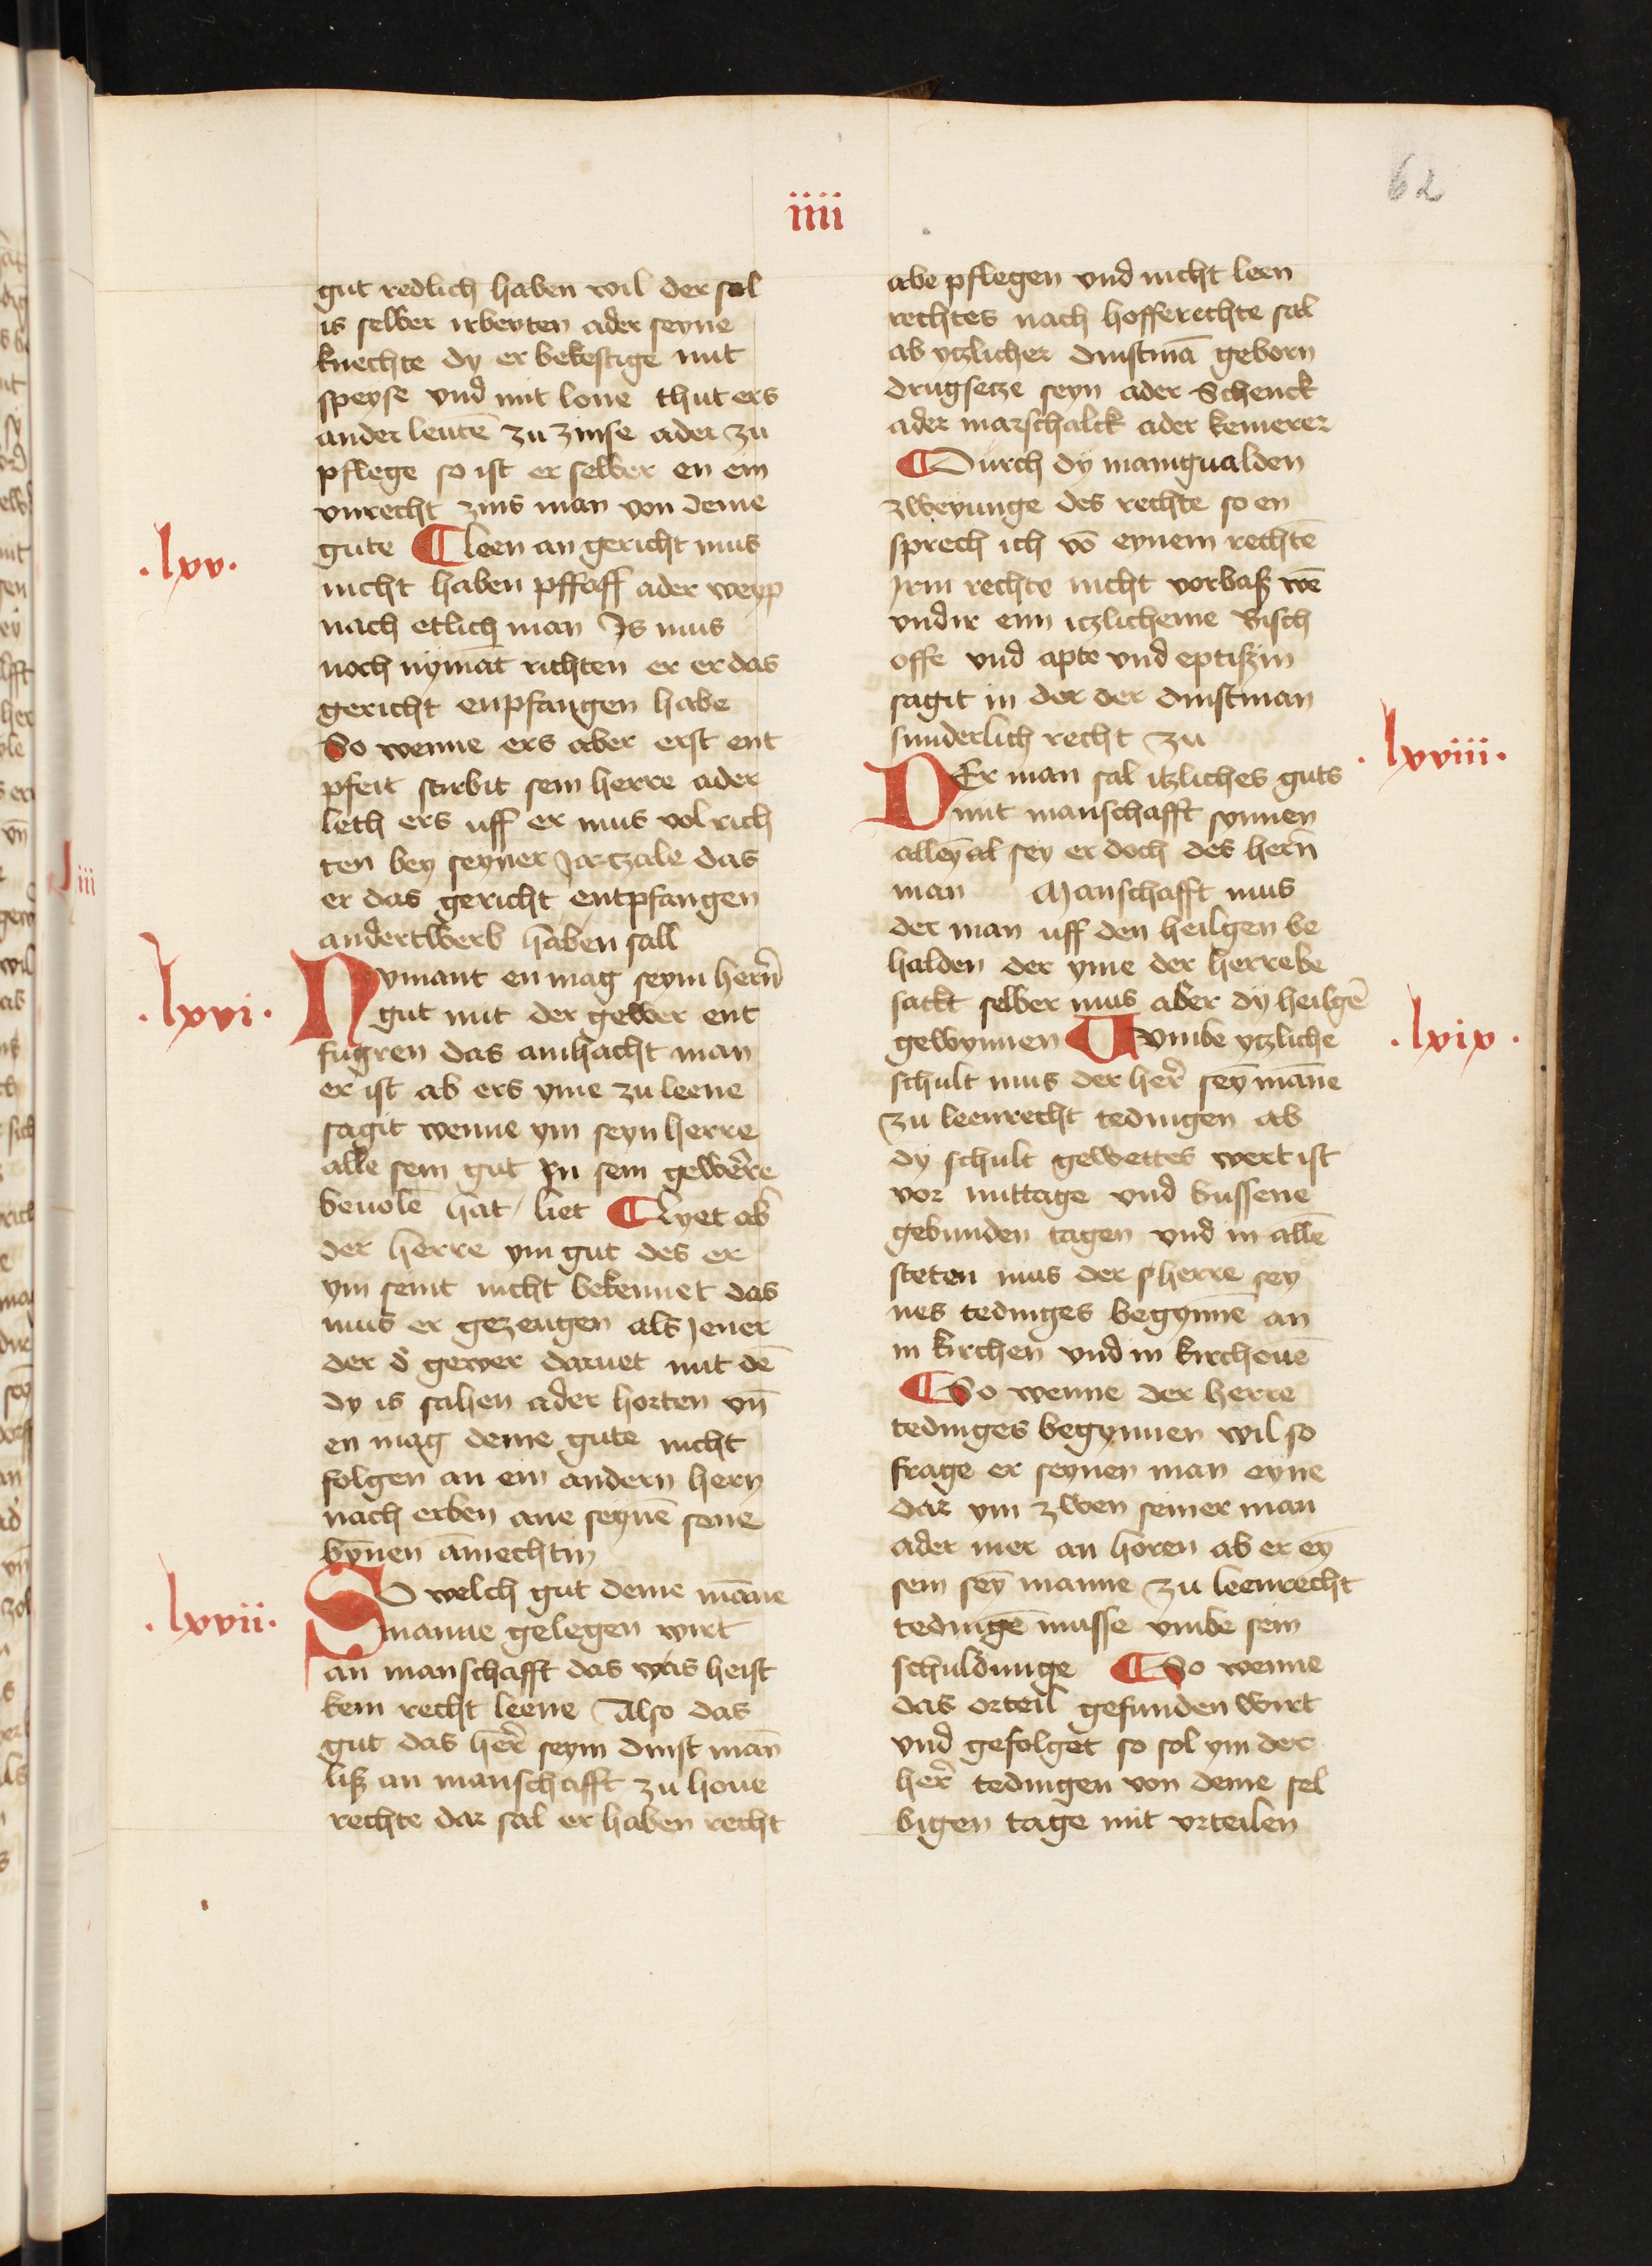 62
iiii
gut redlich haben wil der sol
is selber irbeyten ader seyne
knechte dy er bekestige mit
speyse vnd mit lone thut ers
ander leutē zu zinse ader zu
pflege so ist er selber en ein
vnrecht zins man von deme
gute ¶ leen an gericht mus
.lxv.
nicht haben pffaff ader weyp
nach etlich man Is mus
noch nymāt richten er er das
gericht enpfangen habe
So wenne ers aber erst ent
pfeit stirbit sein herre ader
leth ers uff er mus vol rich
ten bey seyner Jarczale das
er das gericht entpfangen
andertwerb haben sall
Nymant en mag seym herñ
.lxvi.
gut mit der gewer ent
fugren das amhacht man
er ist ab ers yme zu leene
sagit wenne ym seyn herre
alle sein gut yn sein gewere
beuolē hat / liet ¶ lyet ab̕
der herre ym gut des er
ym seint nicht bekennet das
mus er gezeugen als Jener
der d̕ gewer daruet mit dē
dy is sahen ader horten vn̄
en mag deme gute nicht
folgen an ein andern hern
nach erben ane seynē sone
bynnen āmechtin
So welch gut deme māne
.lxvii.
manne gelegen wirt
an manschafft das was heist
kein recht leene Also das
gut das her̕ seym dinst mañ
liß an manschafft zu houe
rechte dar sal er haben recht
abe pflegen vnd nicht leen
rechtes nach hofferechte sal
ab yczlicher dinstmā geborn
drugsecze seyn ader Schenck
ader marschalck ader kemerer
¶ Durch dy manigualden
zweyunge des rechte so en
sprech ich vō eynem rechtē
Irm rechte nicht vorbaß wē
vndir einn iczlicheme Bisch
offe vnd apte vnd eptißin
sagit in der der dinstman
sunderlich recht zu
.lxviii.
Der man sal itzliches guts
mit manschafft synnen
alleyāl sey er doch des herñ
man Manschafft mus
der man uff den heilgen be
halden der yme der herre be
sackt selber mus ader dy heilgē
gewynnen ¶ Vmbe yczliche
.lxix.
schult mus der her̕ seȳ māne
zu leenrecht tedingen ab
dy schult gewettes wert ist
vor mittage vnd bussene
gebunden tagen vnd in allē
steten mus der herre sey
nes tedinges begynnē an
in kirchen vnd in kirchouē
¶ So wenne der herre
tedinges begynnen wil so
frage er seynen man eyne
dar ym zwen seiner man
ader mer an horen ab er eȳ
sem seȳ manne zu leenrecht
tedingē musse vmbe sein
schuldunge ¶ So wenne
das orteil gefunden wirt
vnd gefolget so sol ym der
her̕ tedingen von deme sel
bigen tage mit vrteilen